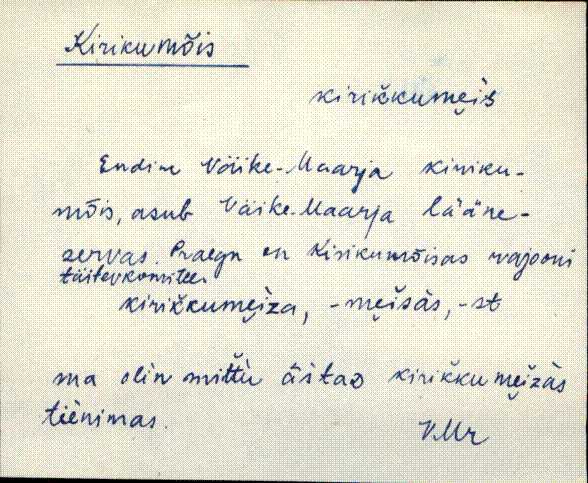 Kirikumõis
kirikkumei̯s
Endine Väike-Maarja kiriku-
mõis, asub Väike-Maarja lääne-
servas. Praegu on Kirikumõisas rajooni
täitevkomitee.
kirikkumei̯za, -mei̯sàs, -st
ma olin mittù àstao kirikkumei̯zàs
tiènimas.
V.Mr